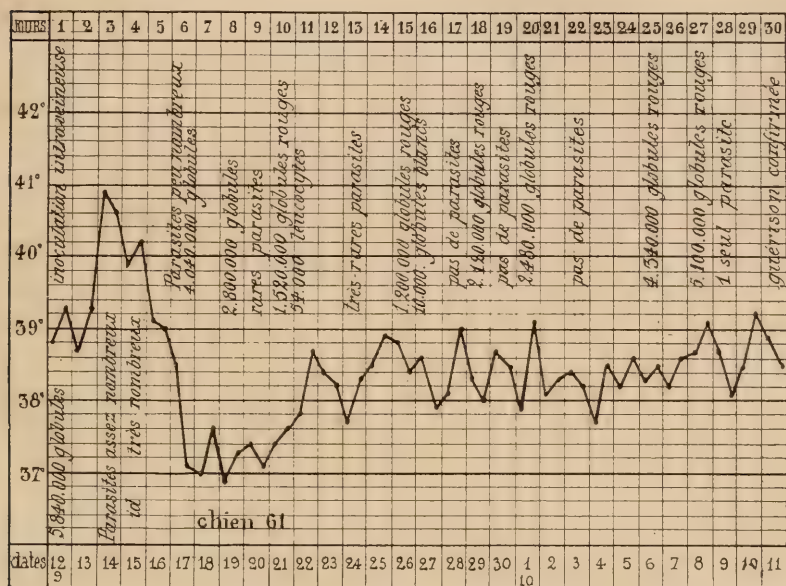 JOURS 1 2 3 4 5 6 7 8 9 10 11 12 13 14 15 16 17 18 19 20 21 22 23 24 25 26 27 28 29 30
42°
41°
40°
39°
38°
37°
5.840.000 globules
inoculation intraveineuse
Parasites assez nombreux
id très nombreux
Parasites peu nombreux
4.040.000 globules
2.800.000 globules
rares parasites
1.520.000 globules rouges
54.000 leucocytes
très-rares parasites
1.200.000 globules rouges
10.000. globules blancs
pas de parasites
2.120.000 globules rouges
pas de parasites
2.480.000 globules rouges
pas de parasites
4.540.000 globules rouges
5.100.000 globules rouges
1 seul parasite
guérison confirmée
chien 61
dates 12 13 14 15 16 17 18 19 20 21 22 23 24 25 26 27 28 29 30 1 2 3 4 5 6 7 8 9 10 11
9 10